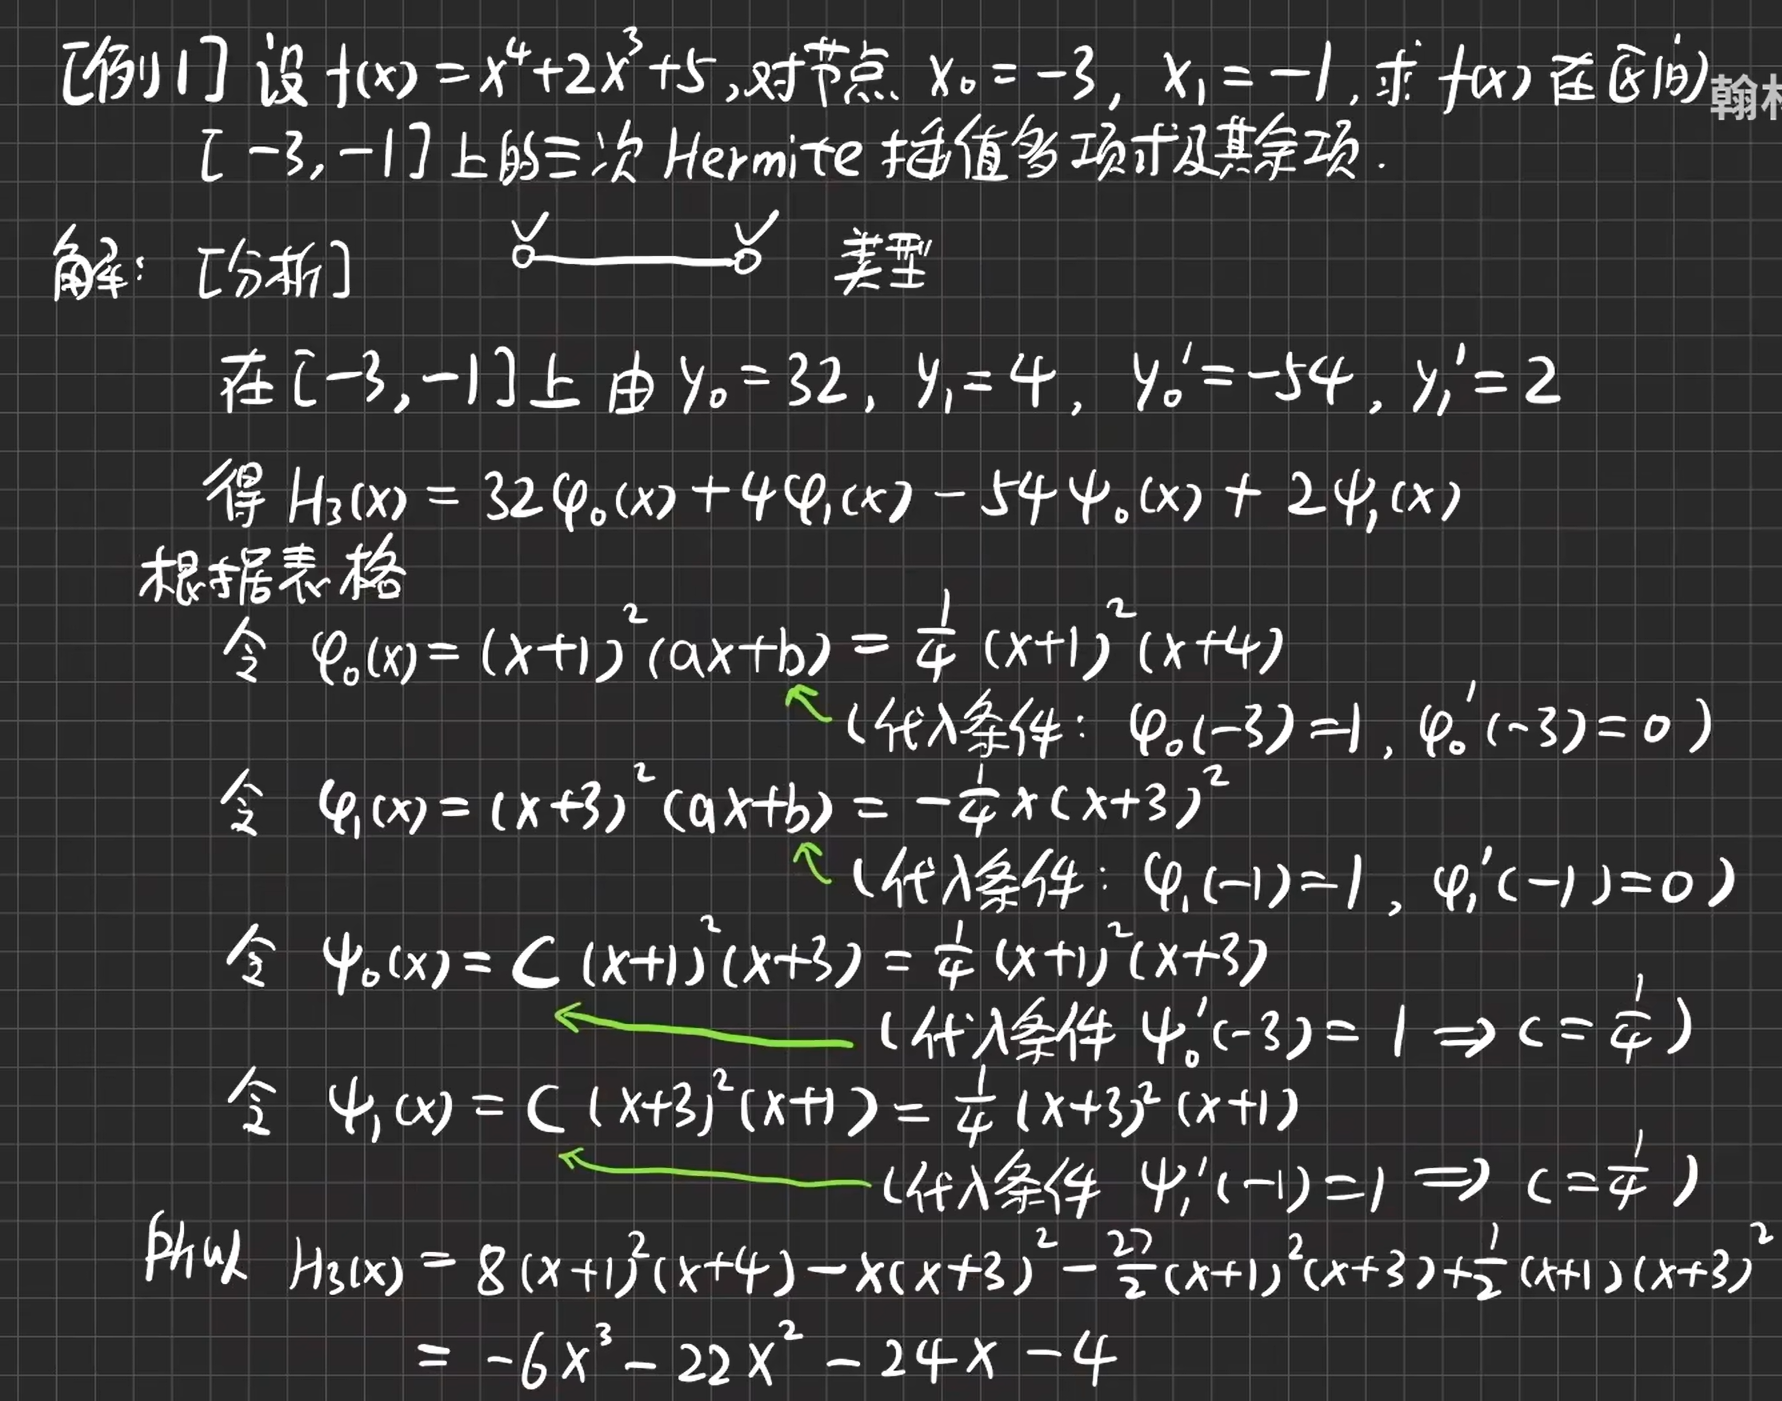 [例1] 设 f(x) = x⁴+2x³+5, 对节点 x₀ = -3, x₁ = -1, 求 f(x) 在区间
翰
[-3, -1] 上的三次 Hermite 插值多项式及其余项.
解: [分析] 类型
在 [-3, -1] 上 由 y₀ = 32, y₁ = 4, y₀′ = -54, y₁′ = 2
得 H₃(x) = 32φ₀(x) + 4φ₁(x) - 54ψ₀(x) + 2ψ₁(x)
根据表格
令 φ₀(x) = (x+1)²(ax+b) = 1/4 (x+1)²(x+4)
(代入条件: φ₀(-3)=1, φ₀′(-3)=0)
令 φ₁(x) = (x+3)²(ax+b) = -1/4 x(x+3)²
(代入条件: φ₁(-1)=1, φ₁′(-1)=0)
令 ψ₀(x) = C (x+1)²(x+3) = 1/4 (x+1)²(x+3)
(代入条件 ψ₀′(-3) = 1 ⇒ c = 1/4)
令 ψ₁(x) = C (x+3)²(x+1) = 1/4 (x+3)²(x+1)
(代入条件 ψ₁′(-1) = 1 ⇒ c = 1/4)
所以 H₃(x) = 8(x+1)²(x+4) - x(x+3)² - 27/2 (x+1)²(x+3) + 1/2 (x+1)(x+3)²
= -6x³ - 22x² - 24x - 4